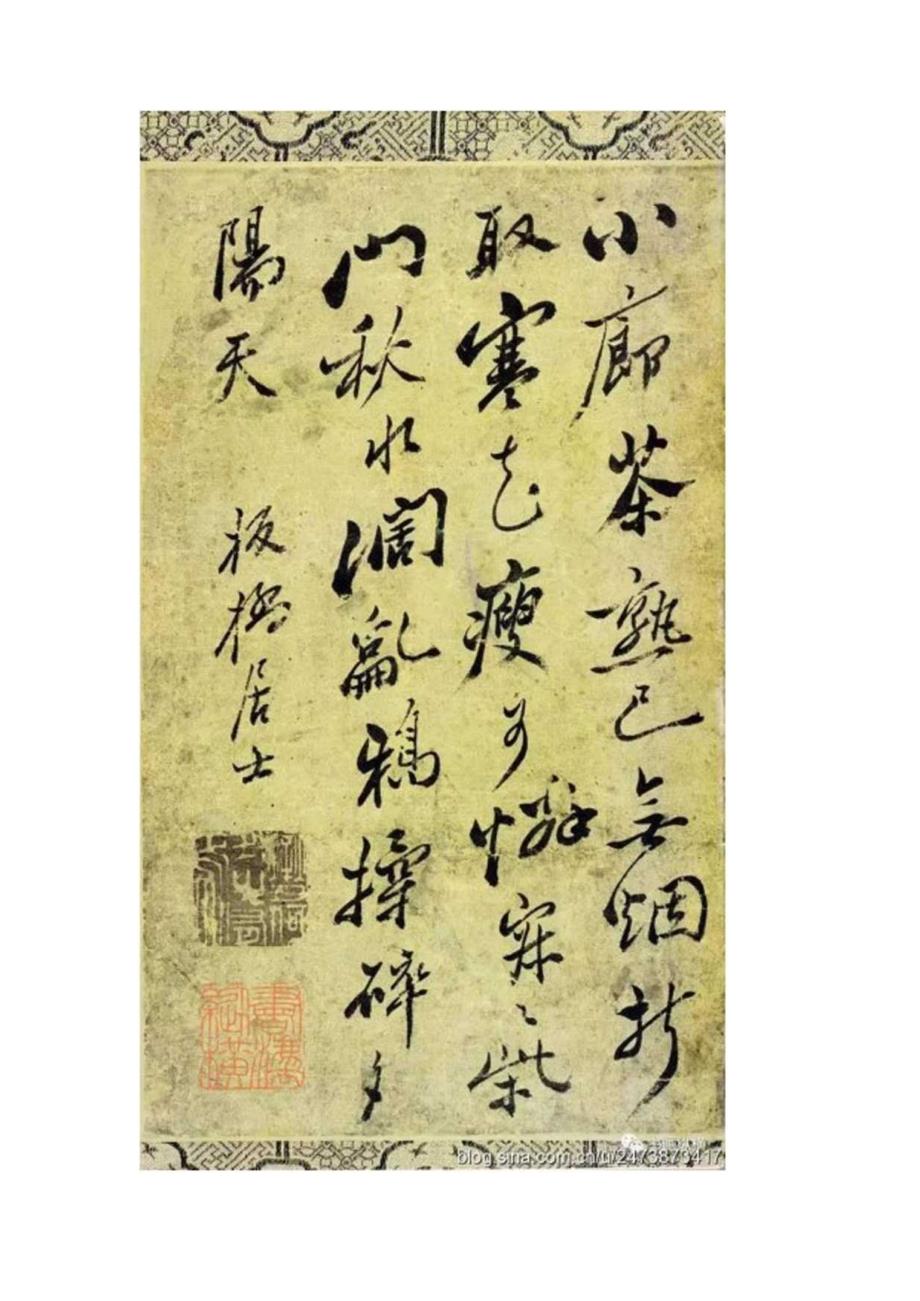 小廊茶熟已無烟折
取寒花瘦可憐寂〻柴
門秋水濶亂鴉揉碎夕
陽天
板橋居士
blog.sina.com.cn/u/2473873417